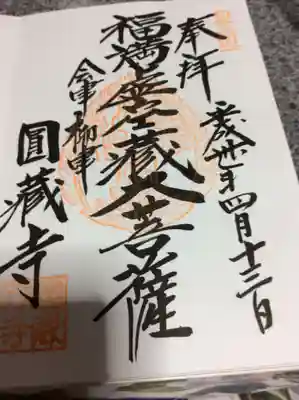 奉拝
平成卅年四月十三日
福満虚空蔵大菩薩
会津柳津
圓蔵寺